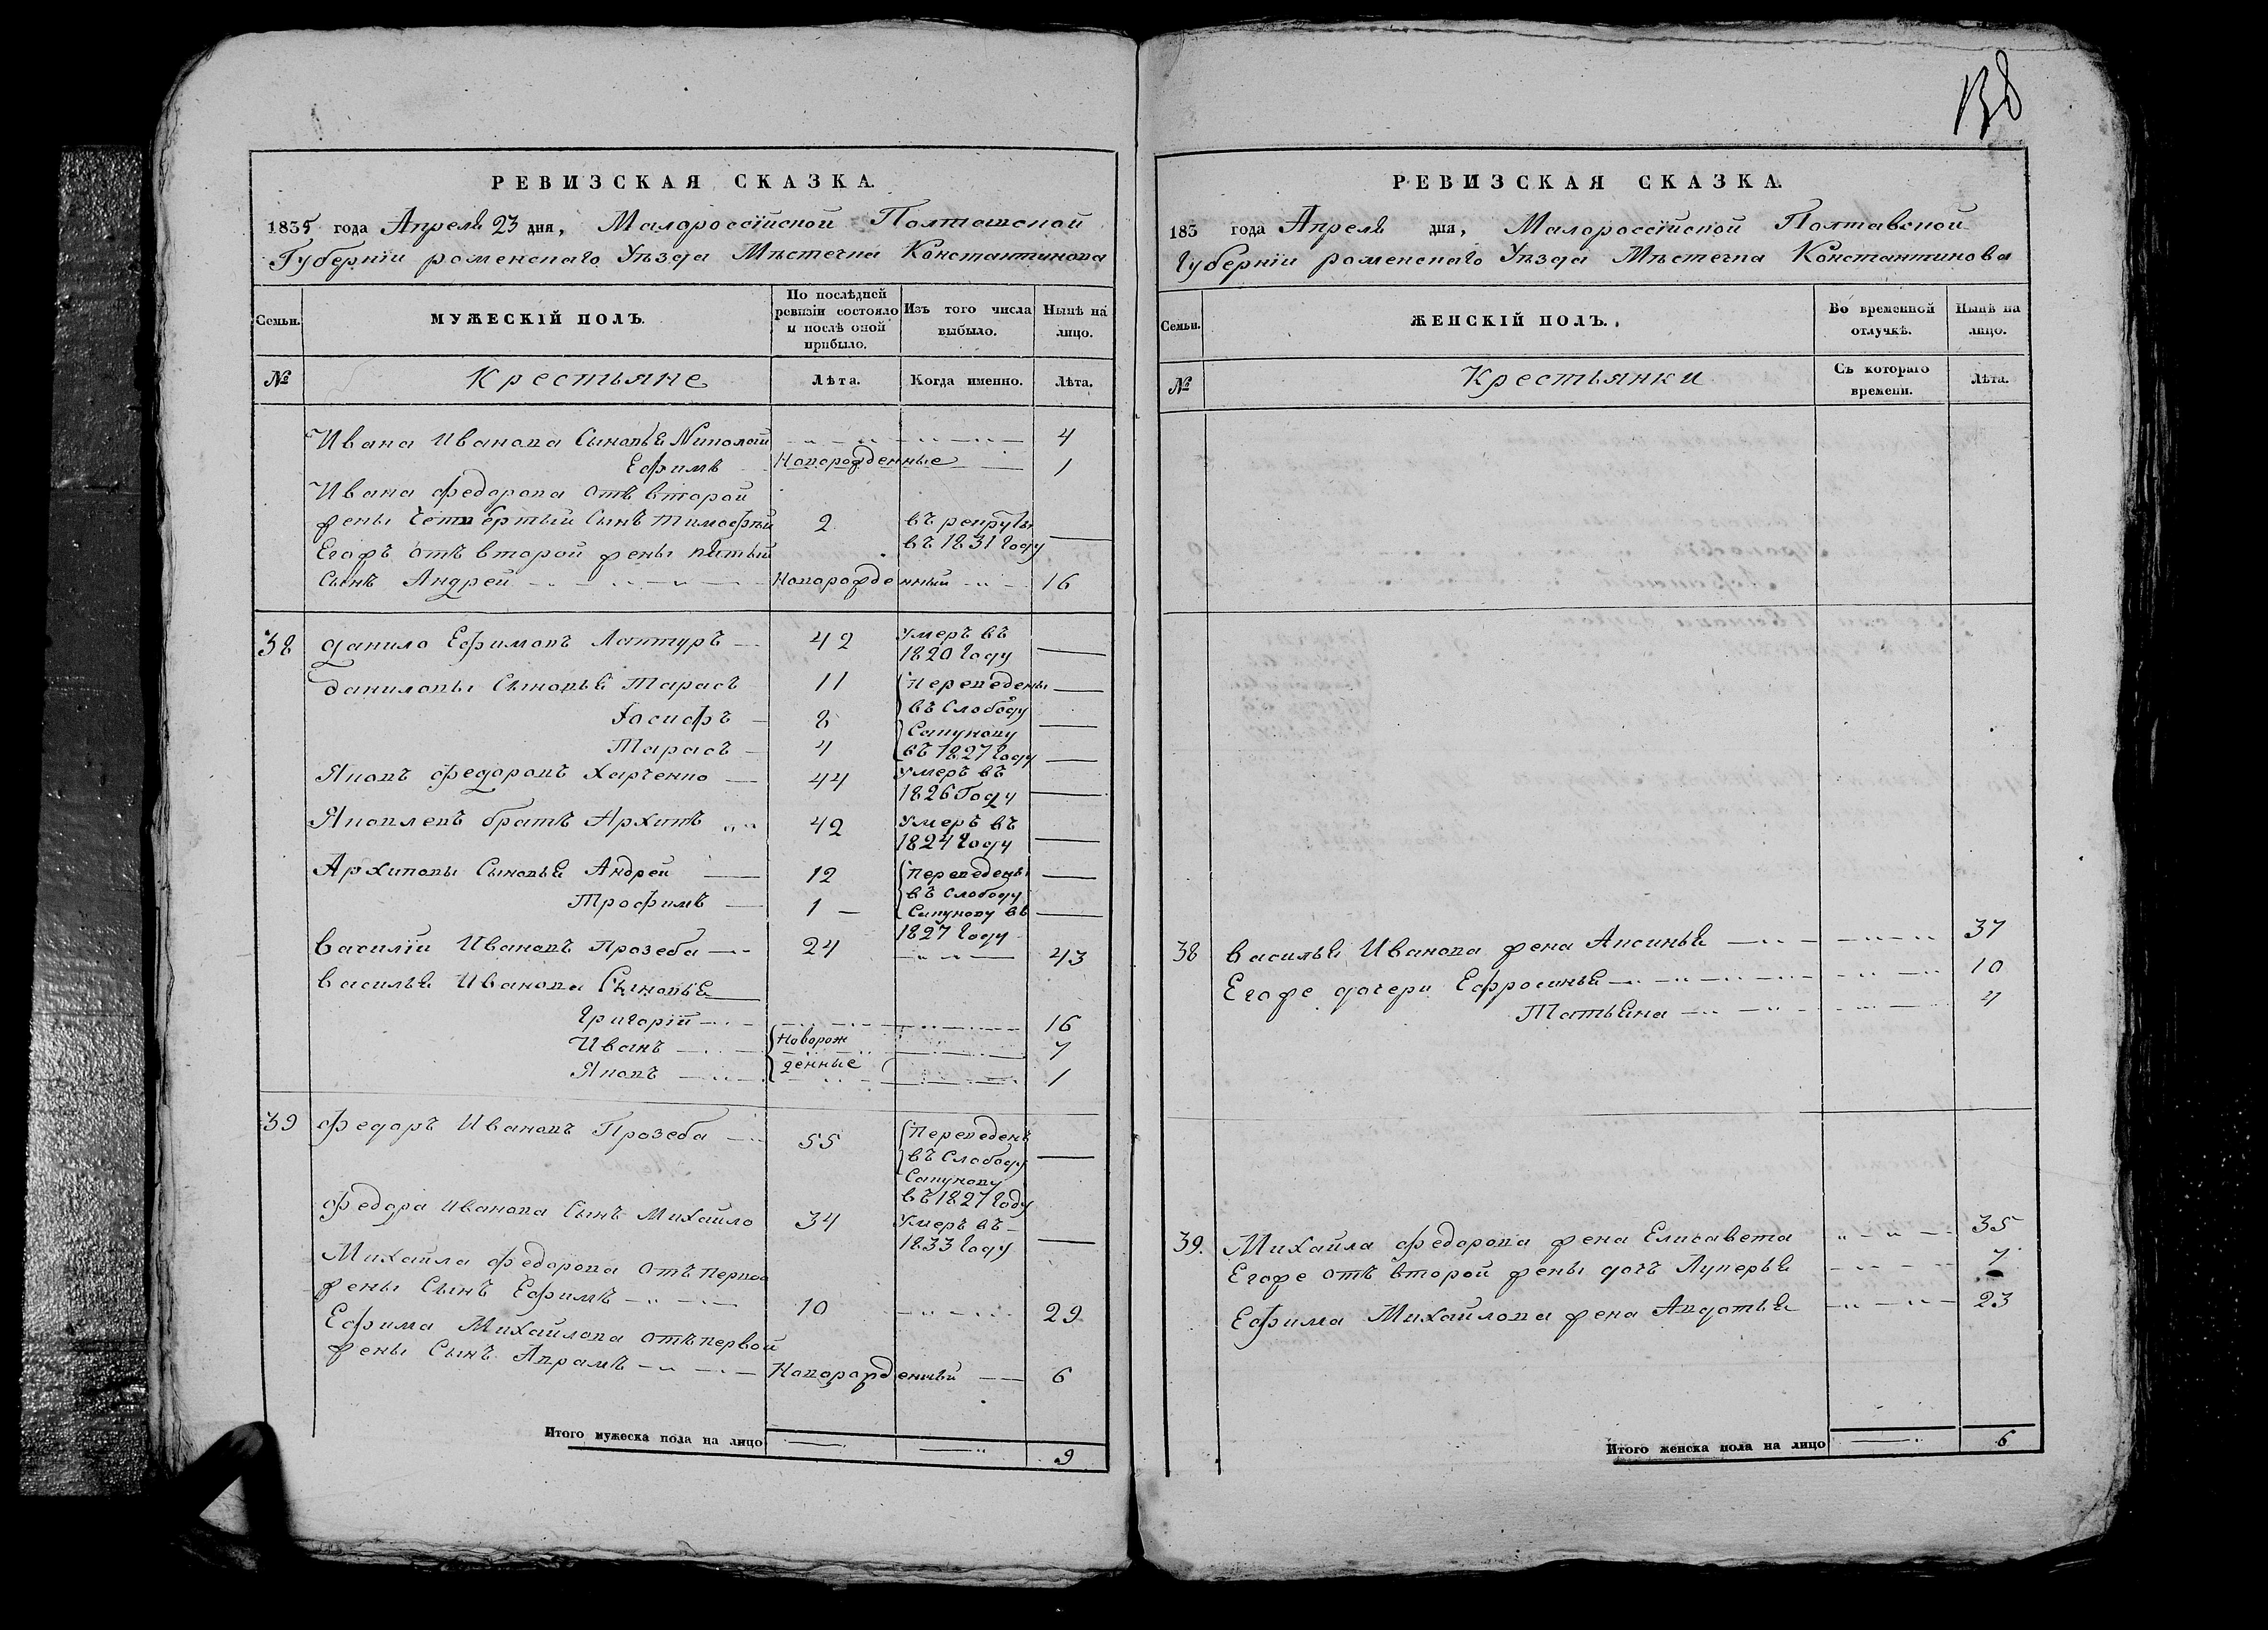 138
РЕВИЗСКАЯ СКАЗКА.
1835 года Апреля 23 дня, Малороссійской Полтавской
Губерніи роменскаго Уѣзда Мѣстечка Константинова
Семьи. МУЖЕСКІЙ ПОЛЪ. По послѣдней ревизіи состояло и послѣ оной прибыло. Изъ того числа выбыло. Нынѣ на лицо.
№ Крестьяне Лѣта. Когда именно. Лѣта.
Ивана Иванова Сыновья Николай 4
Ефимъ Новорожденные 1
Ивана Федорова отъ второй
жены Четвертый Сынъ Тимофѣй 2 въ рекруты
въ 1831 Году
Егожъ отъ второй жены пятый
Сынъ Андрей Новорожденный 16
38 Данило Ефимовъ Лаптуръ 42 Умеръ въ
1820 Году
Даниловы Сыновья Тарасъ 11 Переведены
Іосифъ 8 въ Слободу
Сапунову
Тарасъ 4 въ 1827 Году
Яковъ Федоровъ Харченко 44 Умеръ въ
1826 Году
Яковлевъ братъ Архипъ 42 Умеръ въ
1824 Году
Архиповы Сыновья Андрей 12 Переведены
въ Слободу
Трофимъ 1 Сапунову въ
1827 Году
Василій Ивановъ Прозеба 24 43
Василья Иванова Сыновья
Григорій 16
Иванъ Новорож 7
Яковъ денные 1
39 Федоръ Ивановъ Прозеба 55 Переведенъ
въ Слободу
Сапунову
въ 1827 Году
Федора Иванова Сынъ Михайло 34 Умеръ въ
1833 Году
Михайла Федорова отъ первой
жены Сынъ Ефимъ 10 29
Ефима Михайлова отъ первой
жены Сынъ Аврамъ Новорожденный 6
Итого мужеска пола на лицо 9
РЕВИЗСКАЯ СКАЗКА.
183 года Апреля дня, Малороссійской Полтавской
Губерніи роменскаго Уѣзда Мѣстечка Константинова
Семьи. ЖЕНСКІЙ ПОЛЪ. Во временной отлучкѣ. Нынѣ на лицо.
№ Крестьянки Съ котораго времени. Лѣта.
38 Василья Иванова жена Аксинья 37
Егоже дочери Ефросинья 10
Татьяна 4
39. Михайла Федорова жена Елисавета 35
Егоже отъ второй жены дочъ Лукерья 7
Ефима Михайлова жена Авдотья 23
Итого женска пола на лицо 6